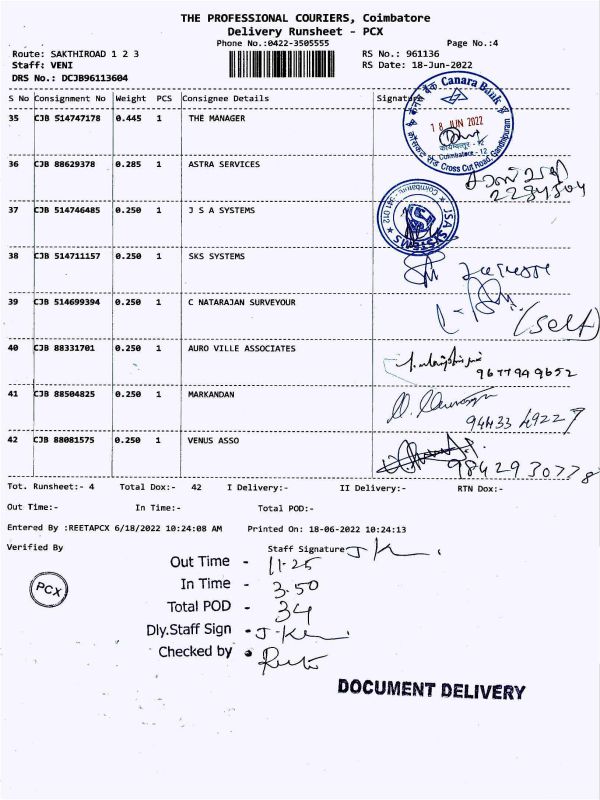 THE PROFESSIONAL COURIERS, Coimbatore
Delivery Runsheet - PCX
Phone No.:0422-3505555
Page No.:4
Route: SAKTHIROAD 1 2 3
RS No.: 961136
Staff: VENI
RS Date: 18-Jun-2022
DRS No.: DCJB96113604
S No Consignment No Weight PCS Consignee Details Signature
35 CJB 514747178 0.445 1 THE MANAGER
Canara Bank
18 JUN 2022
Coimbatore - 12
Cross Cut Road, Gandhipuram
36 CJB 88629378 0.285 1 ASTRA SERVICES
37 CJB 514746485 0.250 1 J S A SYSTEMS
JSA SYSTEMS
38 CJB 514711157 0.250 1 SKS SYSTEMS
39 CJB 514699394 0.250 1 C NATARAJAN SURVEYOUR
(Self)
40 CJB 88331701 0.250 1 AURO VILLE ASSOCIATES
9677949652
41 CJB 88504825 0.250 1 MARKANDAN
94433 49227
42 CJB 88081575 0.250 1 VENUS ASSO
9842930778
Tot. Runsheet:- 4 Total Dox:- 42 I Delivery:- II Delivery:- RTN Dox:-
Out Time:- In Time:- Total POD:-
Entered By :REETAPCX 6/18/2022 10:24:08 AM Printed On: 18-06-2022 10:24:13
Verified By Staff Signature
PCX
Out Time - 11-25
In Time - 3.50
Total POD - 34
Dly.Staff Sign -
Checked by
DOCUMENT DELIVERY